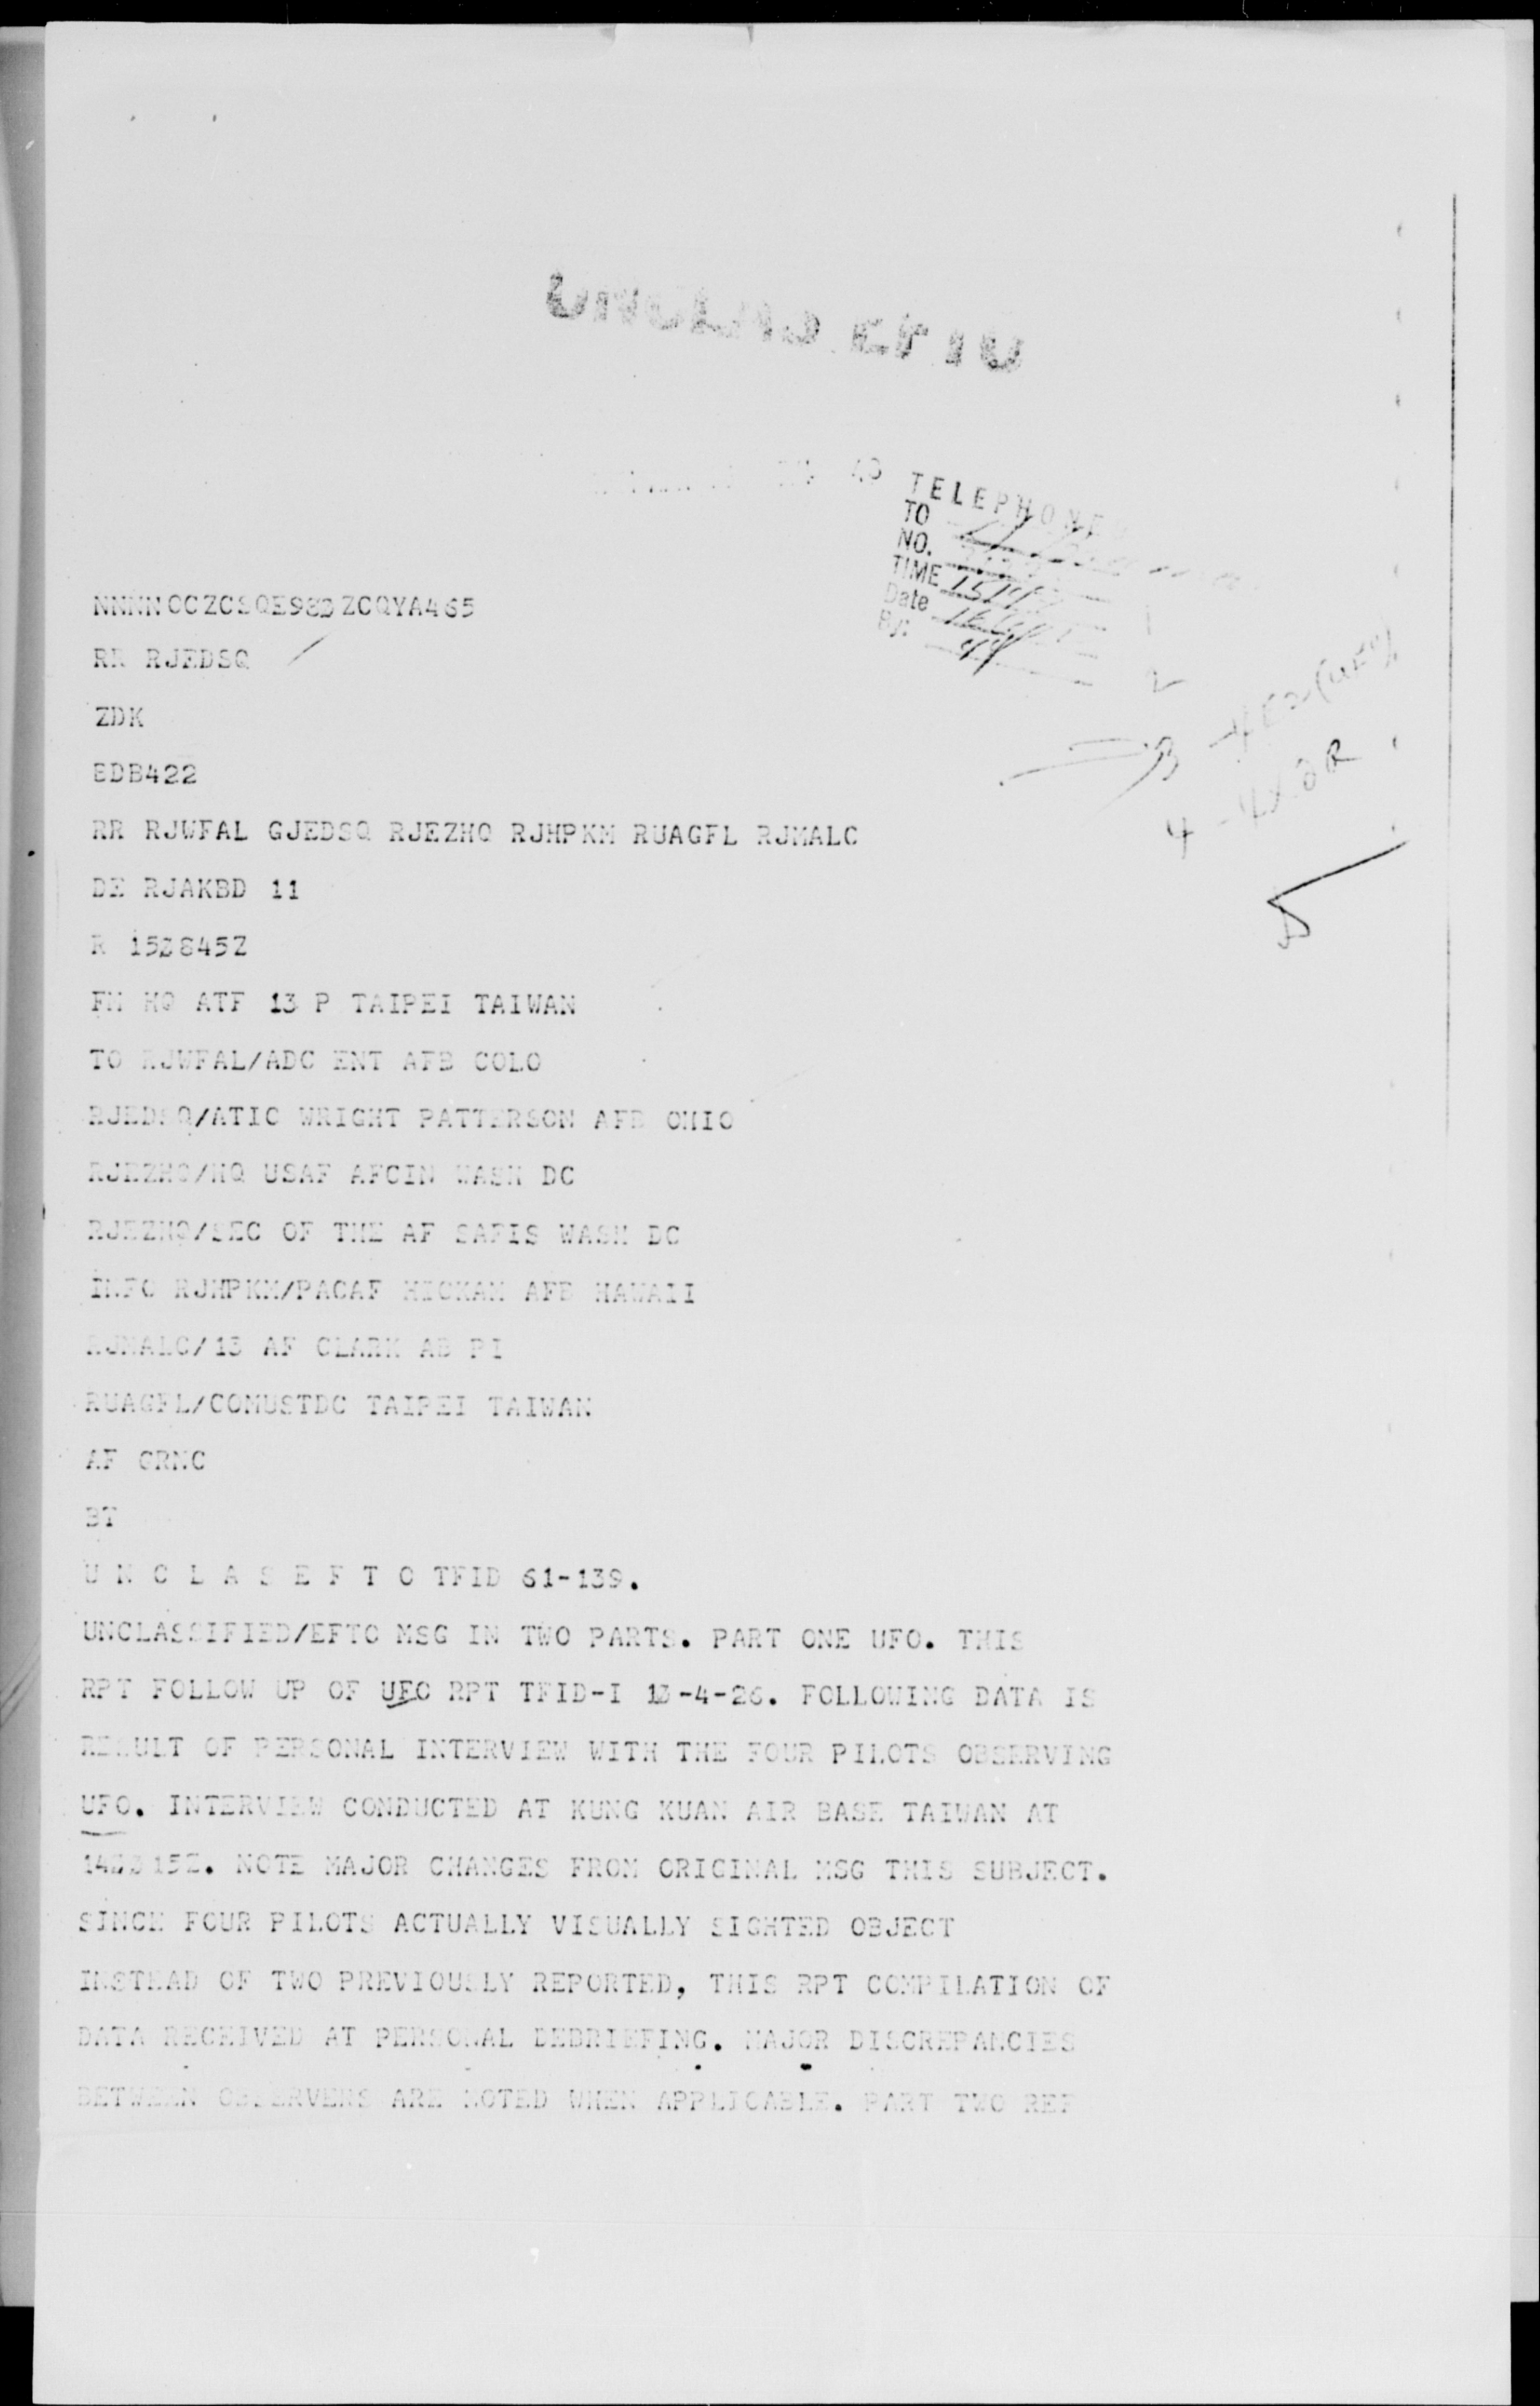 UNCLAS EFTO
TELEPHONE
TO
NO.
TIME
Date
By:
NNNN CCZCSQE983 ZCQYA465
RR RJEDSQ
ZDK
EDB422
RR RJWFAL GJEDSQ RJEZHQ RJHPKM RUAGFL RJMALC
DE RJAKBD 11
R 150845Z
FM HQ ATF 13 P TAIPEI TAIWAN
TO RJWFAL/ADC ENT AFB COLO
RJEDSQ/ATIC WRIGHT PATTERSON AFB OHIO
RJEZHQ/HQ USAF AFCIN WASH DC
RJEZHQ/SEC OF THE AF SAFIS WASH DC
INFO RJHPKM/PACAF HICKAM AFB HAWAII
RJMALC/13 AF CLARK AB PI
RUAGFL/COMUSTDC TAIPEI TAIWAN
AF GRNC
BT
U N C L A S E F T O TFID 61-139.
UNCLASSIFIED/EFTO MSG IN TWO PARTS. PART ONE UFO. THIS
RPT FOLLOW UP OF UFO RPT TFID-I 13-4-26. FOLLOWING DATA IS
RESULT OF PERSONAL INTERVIEW WITH THE FOUR PILOTS OBSERVING
UFO. INTERVIEW CONDUCTED AT KUNG KUAN AIR BASE TAIWAN AT
NOTE MAJOR CHANGES FROM ORIGINAL MSG THIS SUBJECT.
SINCE FOUR PILOTS ACTUALLY VISUALLY SIGHTED OBJECT
INSTEAD OF TWO PREVIOUSLY REPORTED, THIS RPT COMPILATION OF
DATA RECEIVED AT PERSONAL DEBRIEFING. MAJOR DISCREPANCIES
BETWEEN OBSERVERS ARE NOTED WHEN APPLICABLE. PART TWO REF